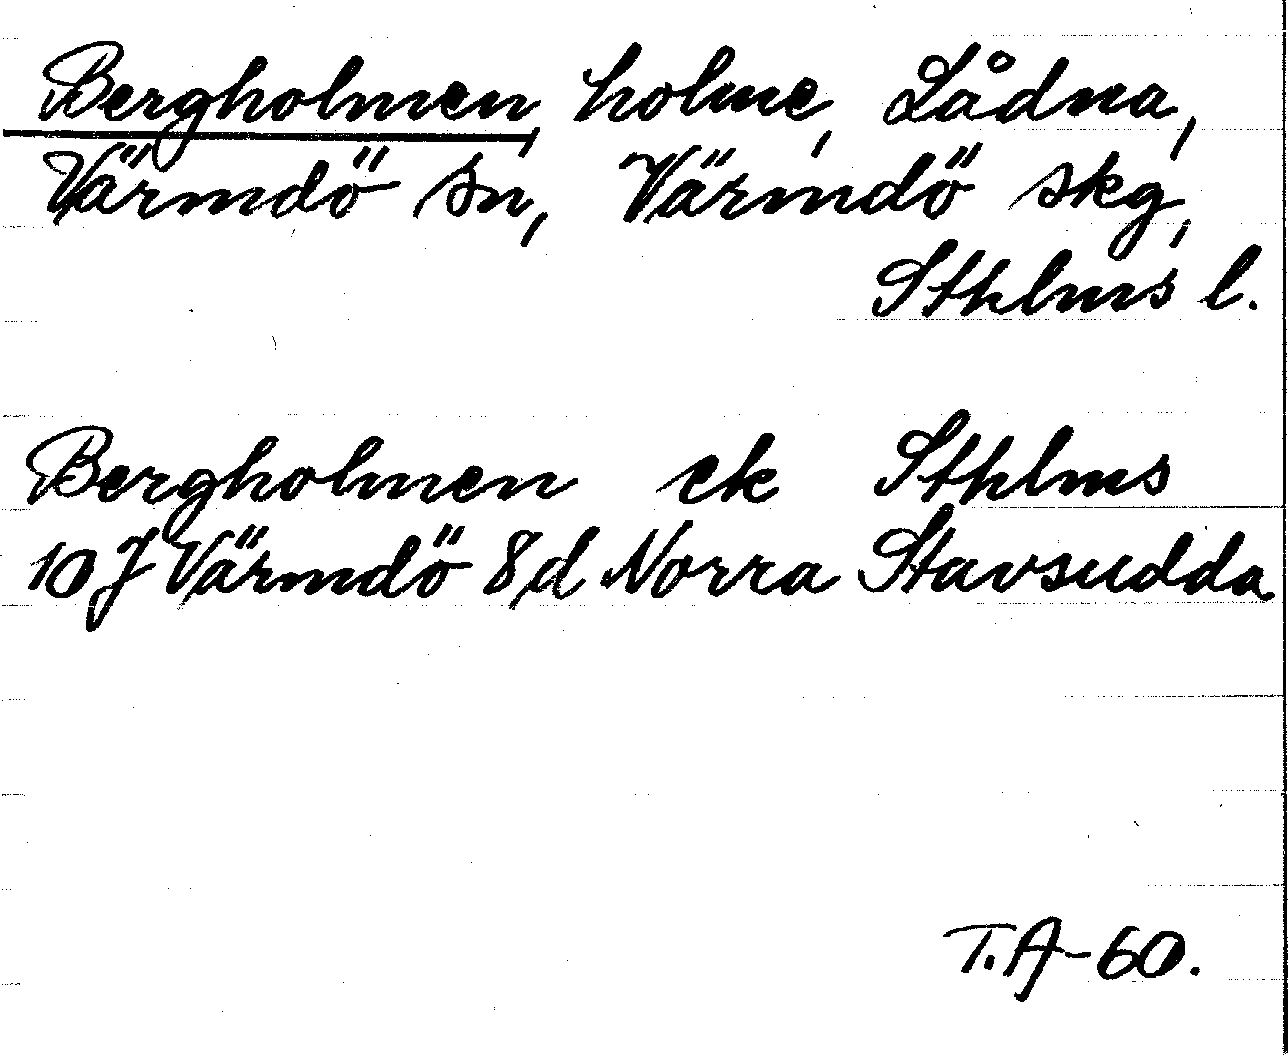 Bergholmen, holme, Lådna,
Värmdö sn, Värmdö skg,
Sthlms l.
Bergholmen ek Sthlms
10 J Värmdö 8d Norra Stavsudda
T.A-60.